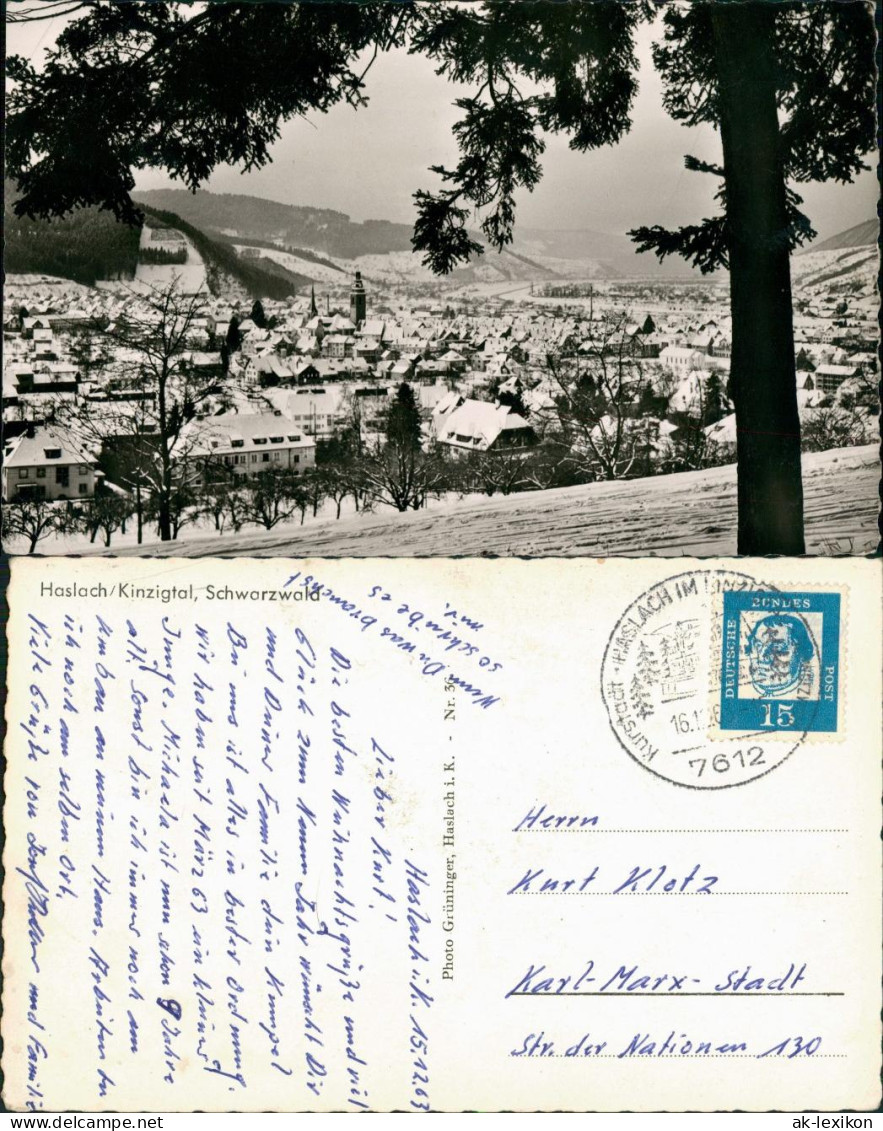 Haslach/Kinzigtal, Schwarzwald
Haslach i. K. 15.12.63
Lieber Kurt!
Die besten Weihnachtsgrüße und viel
Glück zum Neuen Jahr wünscht Dir
und Deiner Familie dein Kumpel
Bei uns ist alles in bester Ordnung.
Wir haben seit März 63 ein kleiner
Junge. Michaela ist nun schon 9 Jahre
alt. Sonst bin ich immer noch am
Umbau an meinem Haus. Arbeiten tu
ich noch am selben Ort.
Viele Grüße von und Familie
Wenn Du was brauchst
so schreibe es
mir.
Photo Grüninger, Haslach i. K. - Nr.
Kurstadt HASLACH IM
16.1
7612
DEUTSCHE BUNDES POST
15
Herrn
Kurt Klotz
Karl-Marx-Stadt
Str. der Nationen 130
ak-lexikon